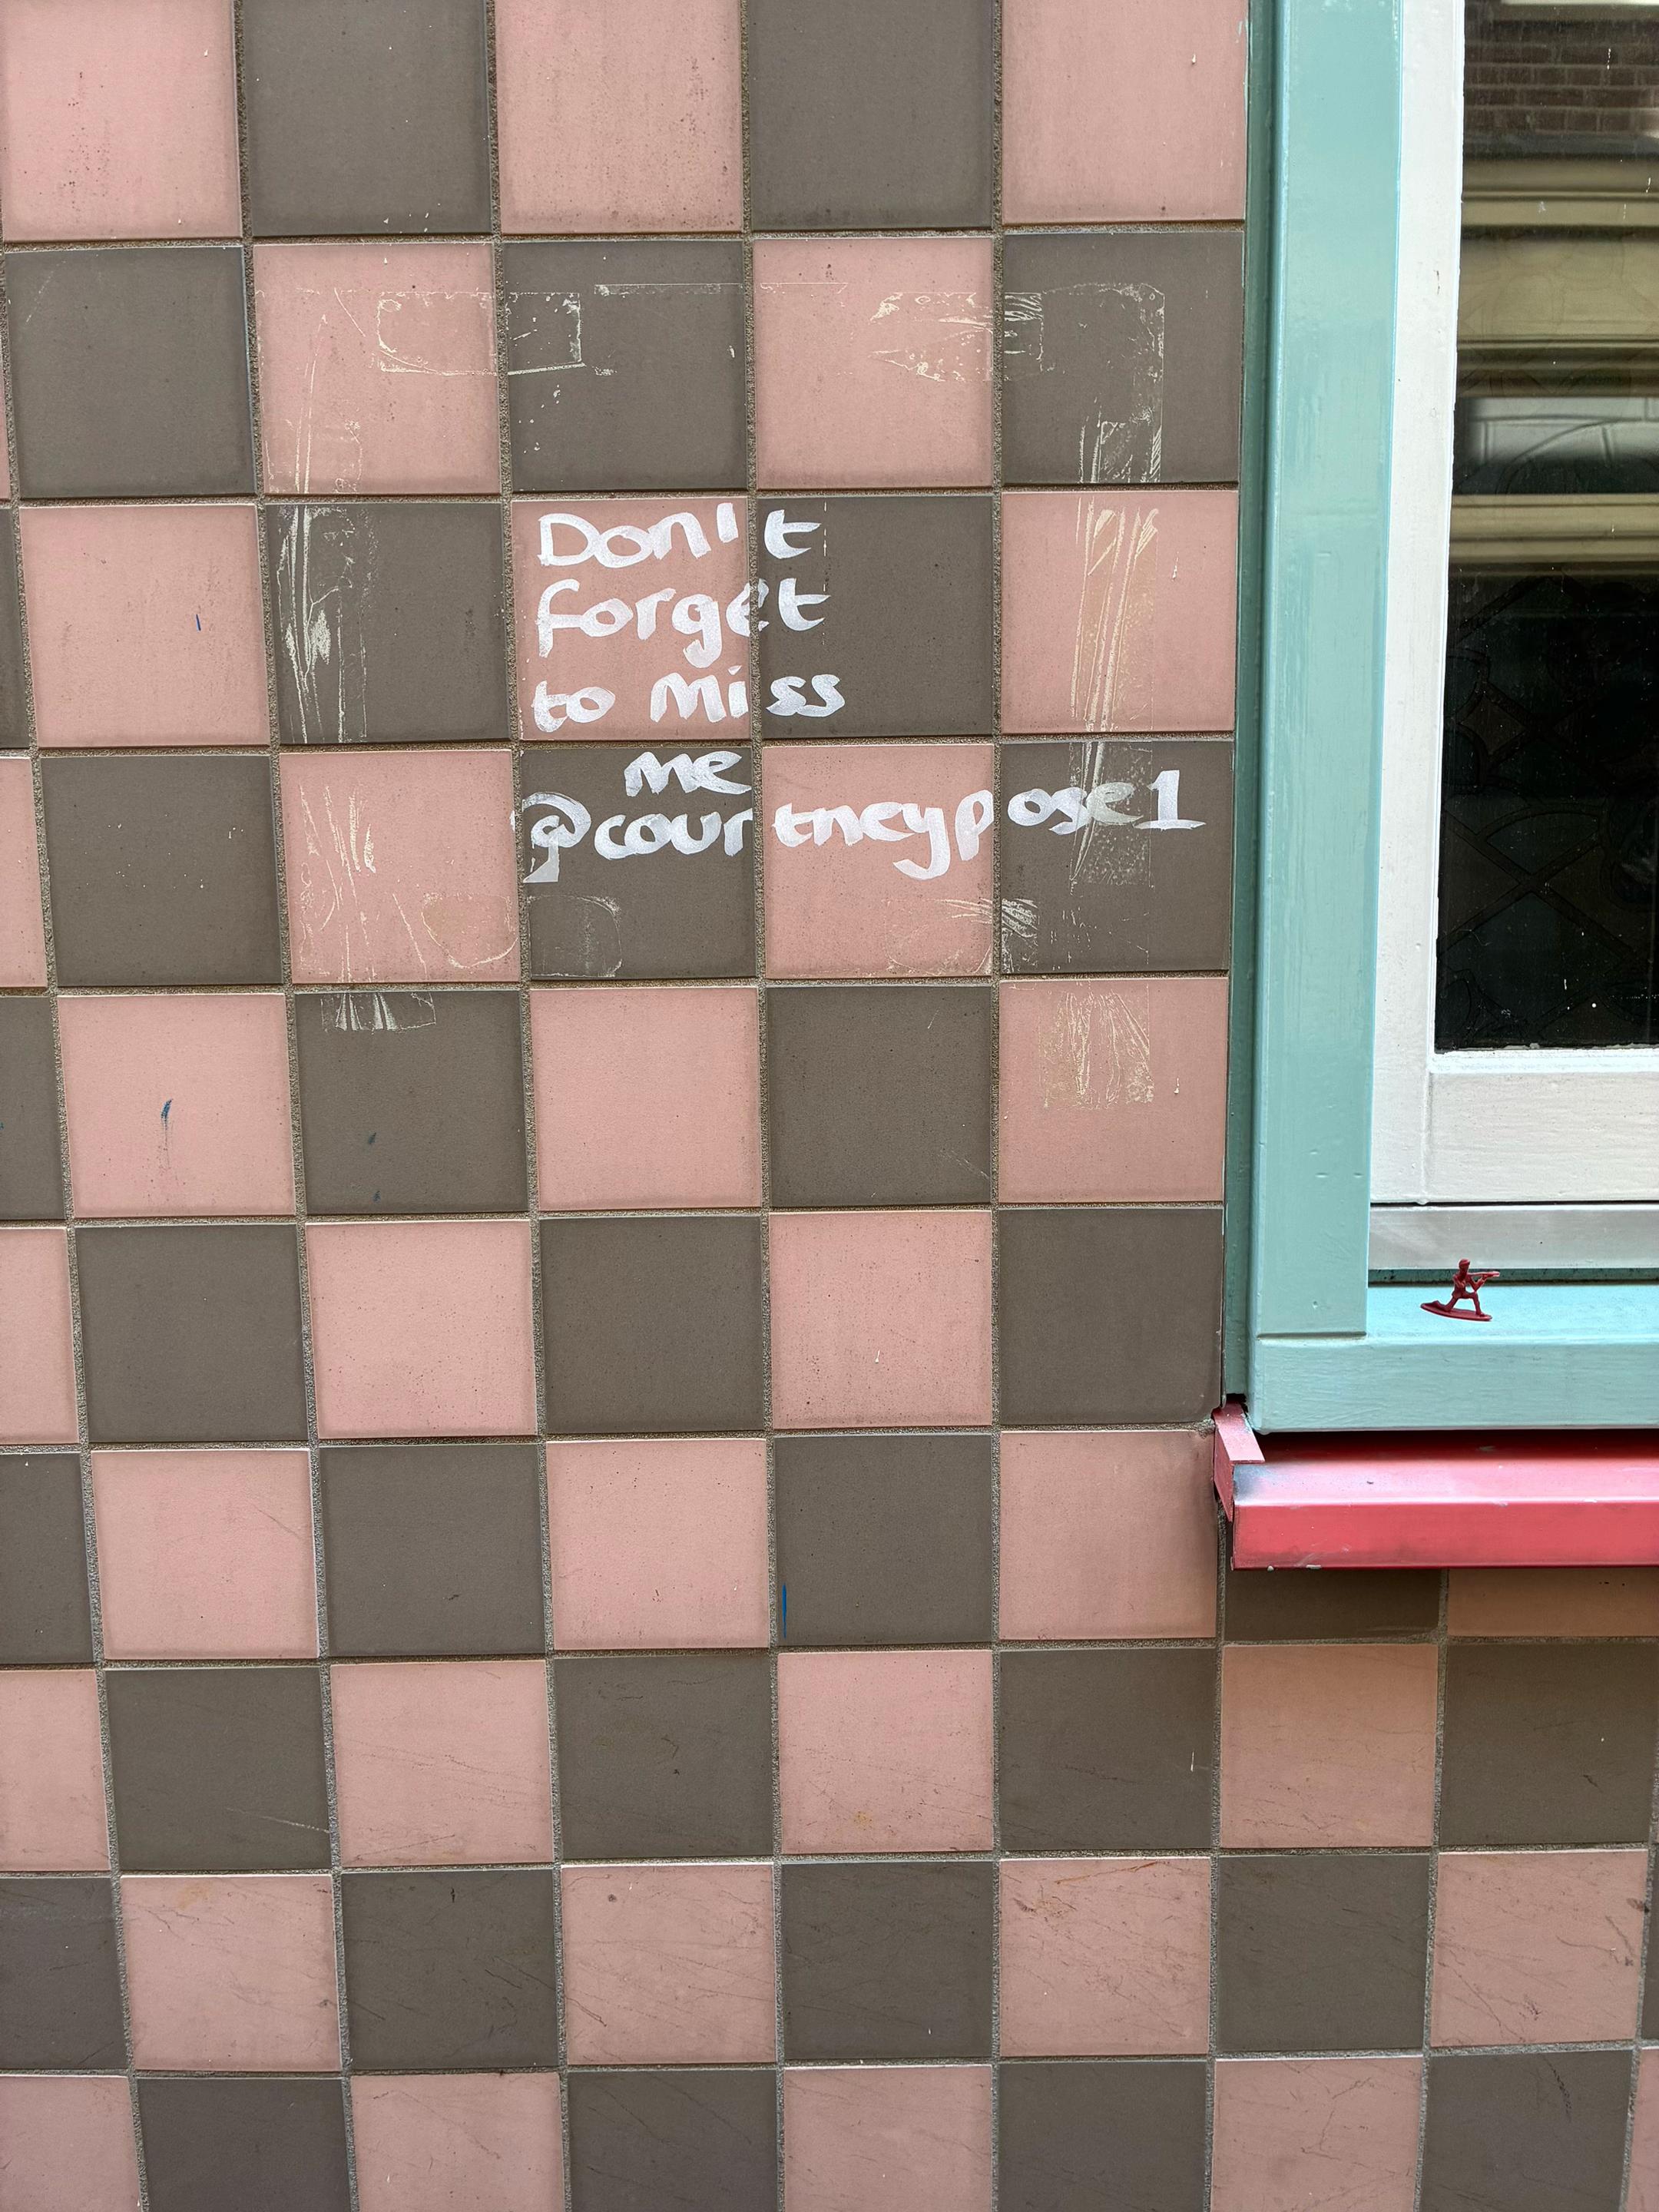 Don't
forget
to Miss
me
@courtneypose1